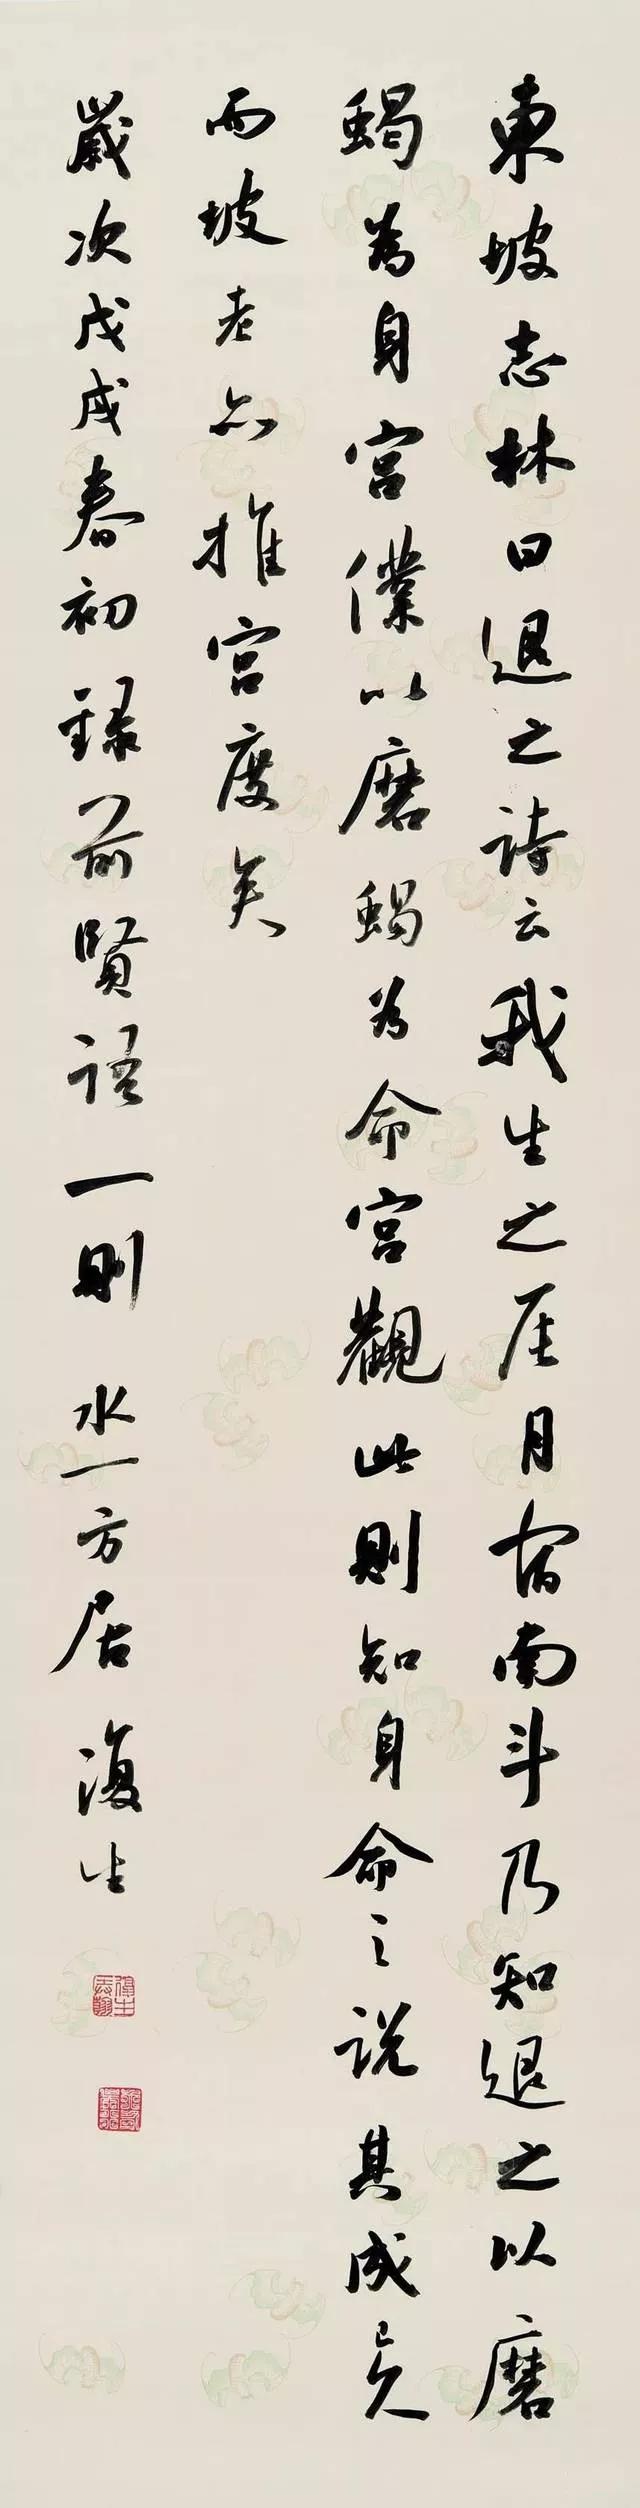 東坡志林曰退之詩云我生之辰月宿南斗乃知退之以磨
蝎為身宮僕以磨蝎為命宮觀此則知身命之說其成已久
而坡老亦推宮度矣
歲次戊戌春初録前賢語一則 水一方居 復生